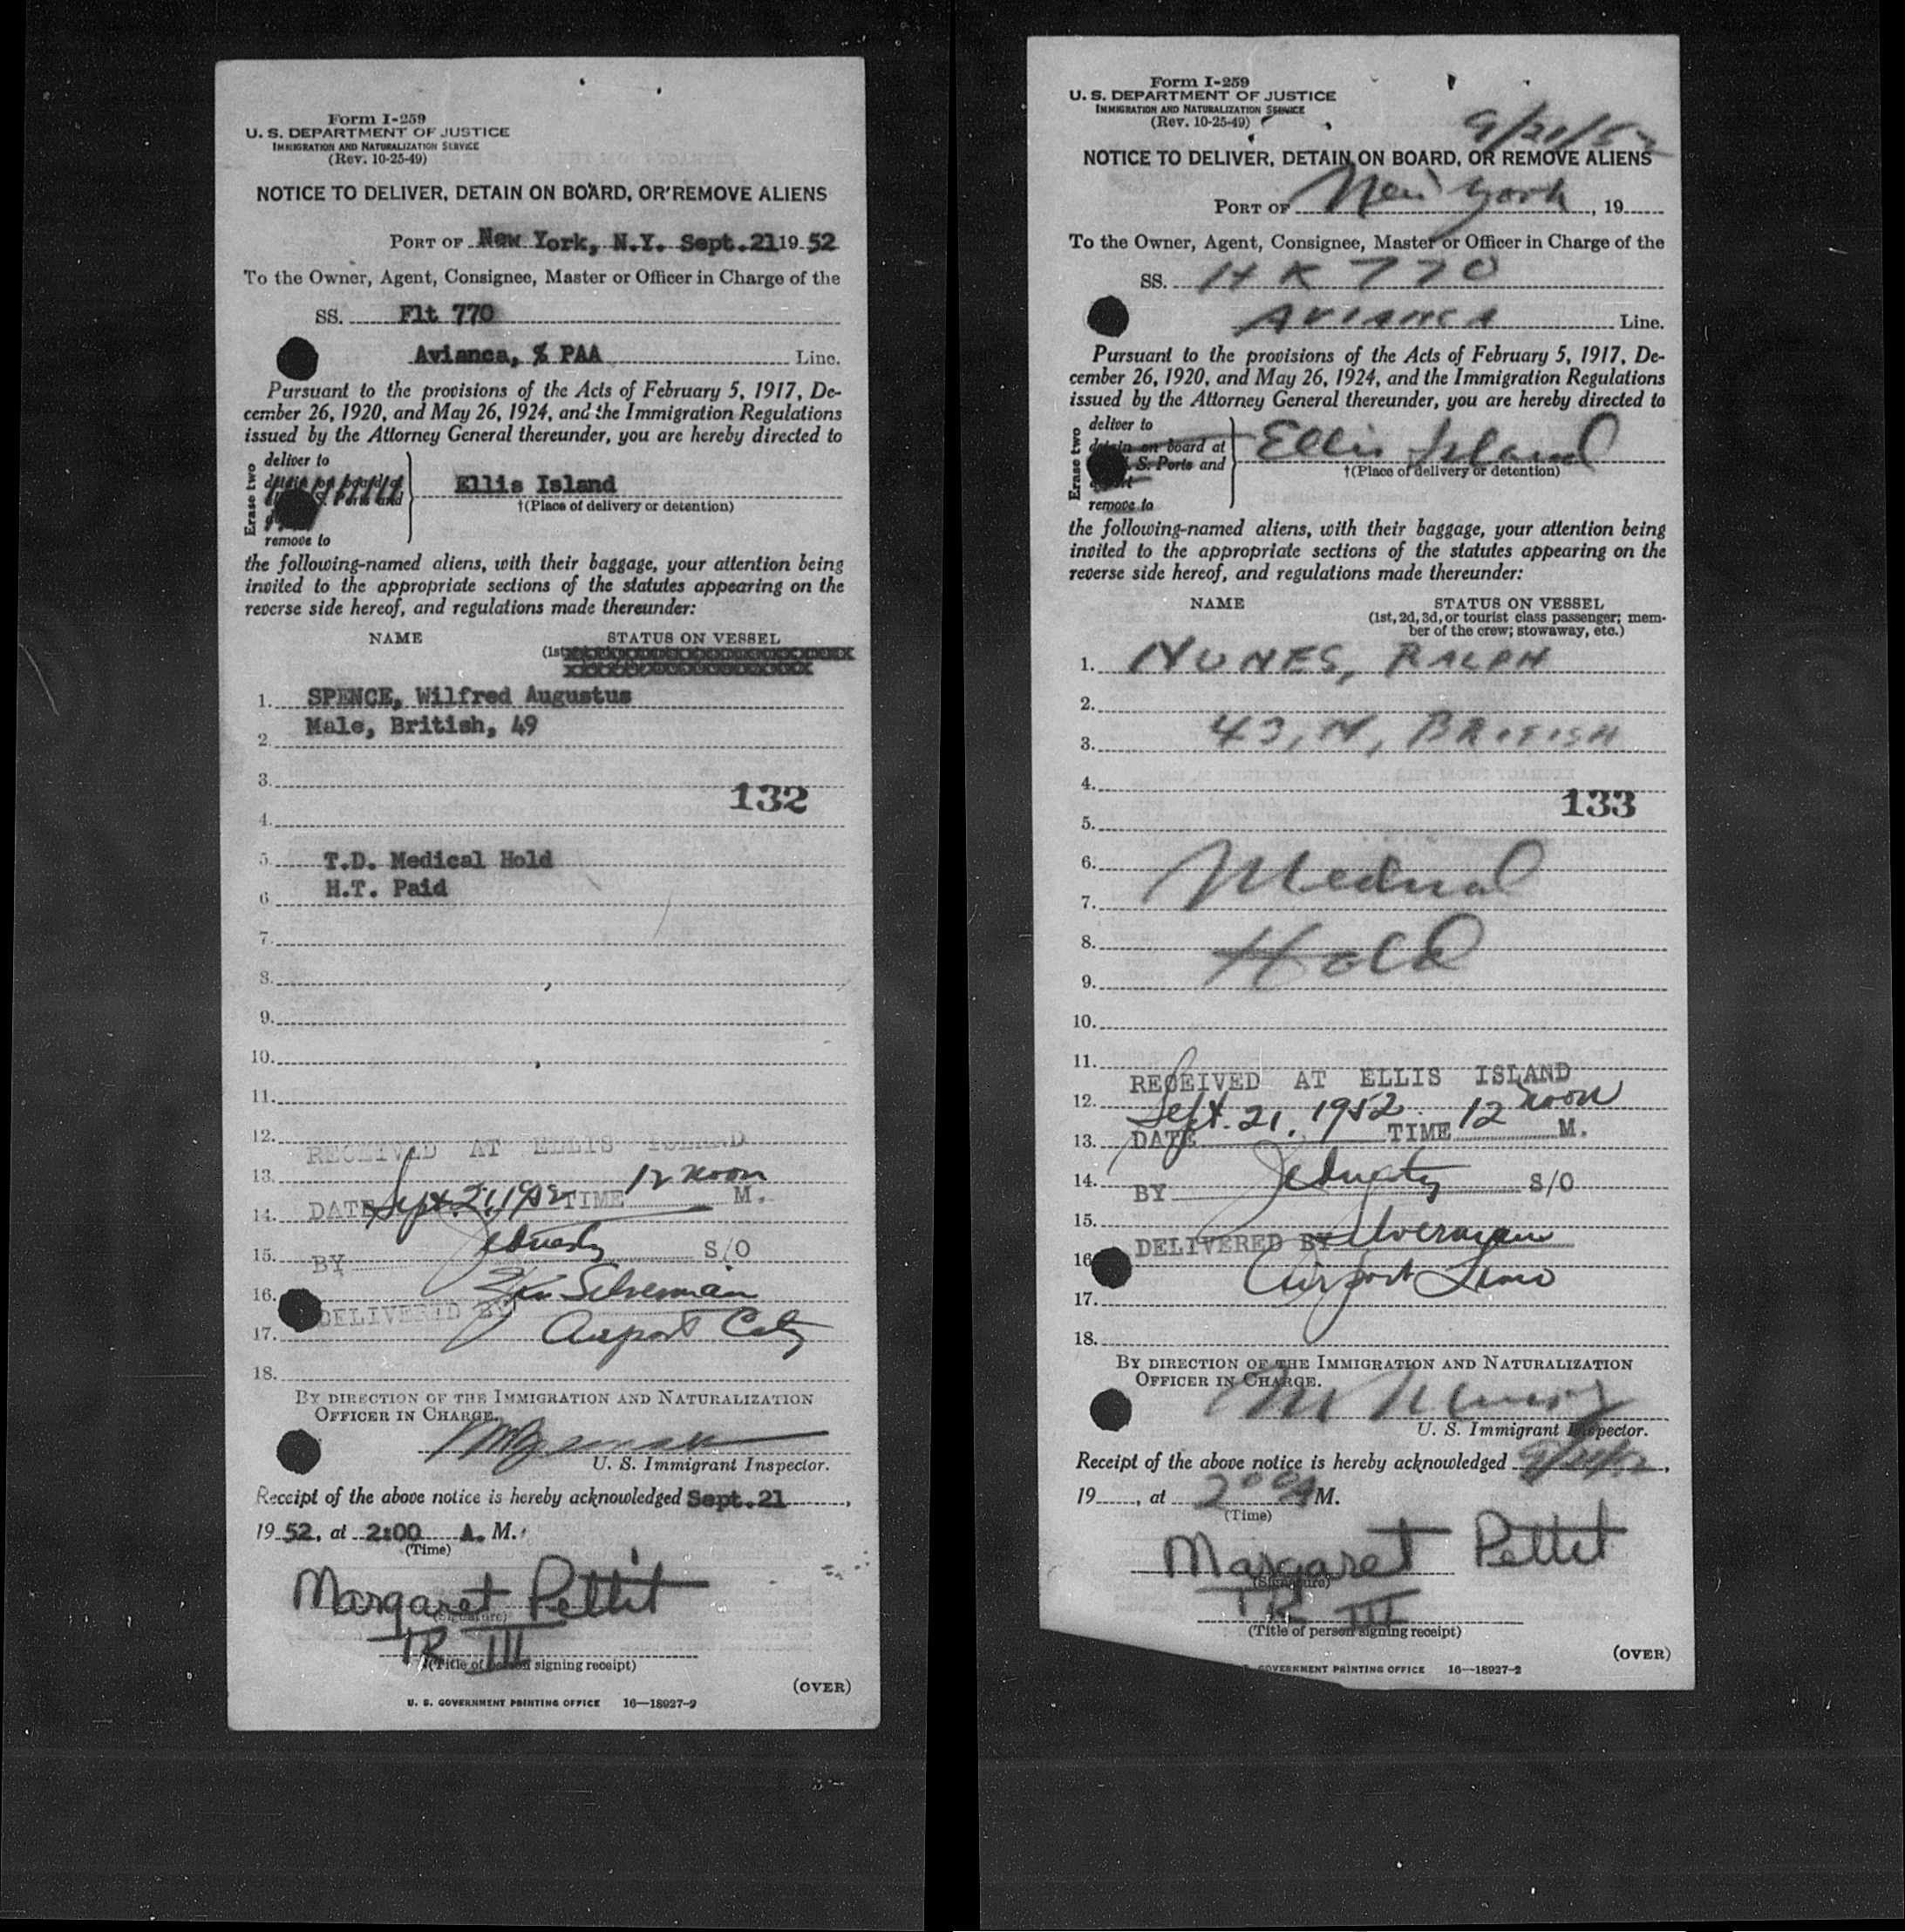 Form I-259
U. S. DEPARTMENT OF JUSTICE
IMMIGRATION AND NATURALIZATION SERVICE
(Rev. 10-25-49)
NOTICE TO DELIVER, DETAIN ON BOARD, OR REMOVE ALIENS
PORT OF New York, N.Y. Sept.21 19 52
To the Owner, Agent, Consignee, Master or Officer in Charge of the
SS. Flt 770
Avianca, % PAA Line.
Pursuant to the provisions of the Acts of February 5, 1917, De-
cember 26, 1920, and May 26, 1924, and the Immigration Regulations
issued by the Attorney General thereunder, you are hereby directed to
Erase two
deliver to
detain on board at
S. Ports and
remove to
Ellis Island
†(Place of delivery or detention)
the following-named aliens, with their baggage, your attention being
invited to the appropriate sections of the statutes appearing on the
reverse side hereof, and regulations made thereunder:
NAME STATUS ON VESSEL
(1st
1. SPENCE, Wilfred Augustus
Male, British, 49
2.
3.
132
4.
5. T.D. Medical Hold
H.T. Paid
6
7.
8.
9.
10.
11.
12.
RECEIVED AT ELLIS ISLAND
13.
DATE Sept. 21, 1952 TIME 12 noon M.
14.
15.
BY S/O
16. Silverman
DELIVERED BY
17. Airport
18.
BY DIRECTION OF THE IMMIGRATION AND NATURALIZATION
OFFICER IN CHARGE.
U. S. Immigrant Inspector.
Receipt of the above notice is hereby acknowledged Sept.21,
19 52, at 2:00 A. M.
(Time)
Margaret Pettit
(Signature)
TR III
(Title of person signing receipt)
(OVER)
U. S. GOVERNMENT PRINTING OFFICE 16—18927-2
Form I-259
U. S. DEPARTMENT OF JUSTICE
IMMIGRATION AND NATURALIZATION SERVICE
(Rev. 10-25-49)
9/21/52
NOTICE TO DELIVER, DETAIN ON BOARD, OR REMOVE ALIENS
PORT OF New York, 19
To the Owner, Agent, Consignee, Master or Officer in Charge of the
SS. HK 770
AVIANCA Line.
Pursuant to the provisions of the Acts of February 5, 1917, De-
cember 26, 1920, and May 26, 1924, and the Immigration Regulations
issued by the Attorney General thereunder, you are hereby directed to
Erase two
deliver to
detain on board at
S. Ports and
remove to
Ellis Island
†(Place of delivery or detention)
the following-named aliens, with their baggage, your attention being
invited to the appropriate sections of the statutes appearing on the
reverse side hereof, and regulations made thereunder:
NAME STATUS ON VESSEL
(1st, 2d, 3d, or tourist class passenger; mem-
ber of the crew; stowaway, etc.)
1. NUNES, RALPH
2.
3. 43, M, BRITISH
4.
133
5.
6. Medical
7.
8. Hold
9.
10.
11.
RECEIVED AT ELLIS ISLAND
12. Sept. 21, 1952 12 noon
13. DATE TIME M.
14.
BY S/O
15.
DELIVERED BY Silverman
16. Airport Limo
17.
18.
BY DIRECTION OF THE IMMIGRATION AND NATURALIZATION
OFFICER IN CHARGE.
U. S. Immigrant Inspector.
Receipt of the above notice is hereby acknowledged 9/21/52,
19, at 2 00 A M.
(Time)
Margaret Pettit
(Signature)
TR III
(Title of person signing receipt)
(OVER)
GOVERNMENT PRINTING OFFICE 16—18927-2